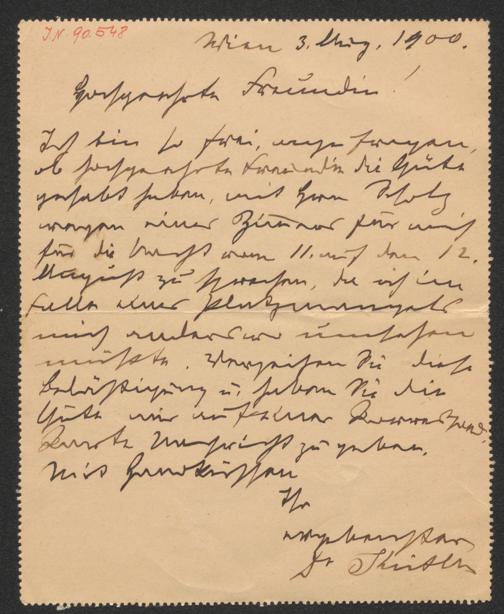 I.N. 90.548
Wien 3. Aug. 1900.
Hochgeehrte Freundin!
Ich bin so frei, anzufragen,
ob hochgeehrte Freundin die Güte
gehabt haben, mit Herrn
wegen eines Zimmers für mich
für die Nacht vom 11. auf den 12.
August zu sprechen, da ich im
Falle eines Platzmangels
mich anderswo umsehen
müßte. Verzeihen Sie diese
Belästigung u. haben Sie die
Güte mir auf einer Correspond.
Karte Nachricht zu geben.
Mit Handküssen
Ihr
ergebenster
Dr